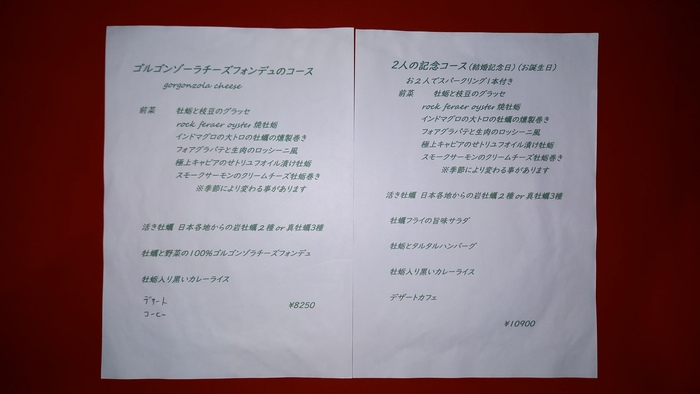 ゴルゴンゾーラチーズフォンデュのコース
gorgonzola cheese
前菜 牡蛎と枝豆のグラッセ
rock feraer oyster 焼牡蛎
インドマグロの大トロの牡蠣の燻製巻き
フォアグラパテと生肉のロッシーニ風
極上キャビアのせトリュフオイル漬け牡蛎
スモークサーモンのクリームチーズ牡蛎巻き
※季節により変わる事があります
活き牡蠣 日本各地からの岩牡蠣2種 or 真牡蠣3種
牡蠣と野菜の100%ゴルゴンゾラチーズフォンデュ
牡蛎入り黒いカレーライス
デザート
コーヒー
¥8250
2人の記念コース(結婚記念日)(お誕生日)
お2人でスパークリング1本付き
前菜 牡蛎と枝豆のグラッセ
rock feraer oyster 焼牡蛎
インドマグロの大トロの牡蠣の燻製巻き
フォアグラパテと生肉のロッシーニ風
極上キャビアのせトリュフオイル漬け牡蛎
スモークサーモンのクリームチーズ牡蛎巻き
※季節により変わる事があります
活き牡蠣 日本各地からの岩牡蠣2種 or 真牡蠣3種
牡蠣フライの旨味サラダ
牡蛎とタルタルハンバーグ
牡蛎入り黒いカレーライス
デザートカフェ
¥10900